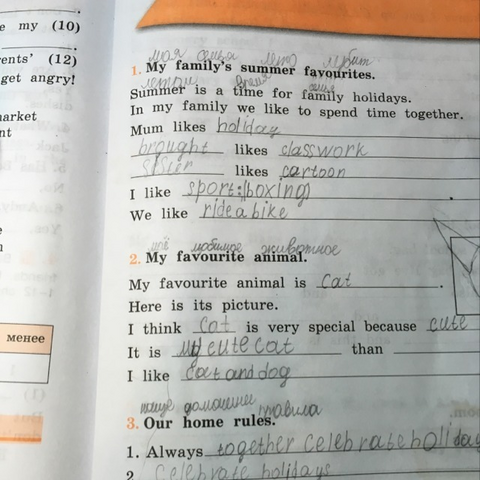 e my (10)
ents' (12)
get angry!
market
nt
менее
моя семья лето любит
1. My family's summer favourites.
летом время семье
Summer is a time for family holidays.
In my family we like to spend time together.
Mum likes holiday
brought likes classwork
sister likes cartoon
I like sport:(boxing)
We like ride a bike
моё любимое животное
2. My favourite animal.
My favourite animal is cat.
Here is its picture.
I think cat is very special because cute
It is my cute cat than
I like cat and dog
домашние правила
3. Our home rules.
1. Always together celebrate holiday
2 celebrate holidays